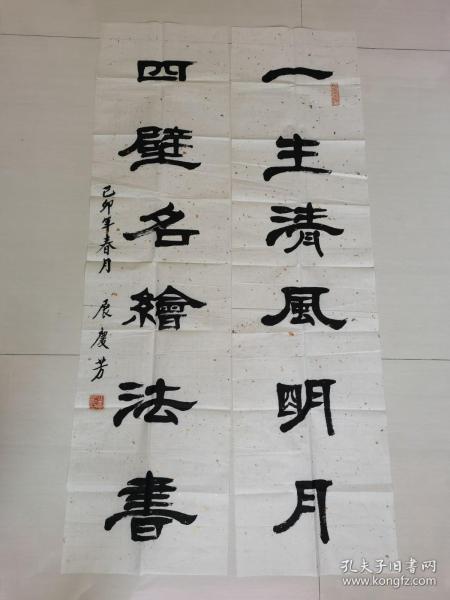 一生清風明月
四壁名繪法書
己卯年春月 展慶芳
孔夫子旧书网
www.kongfz.com